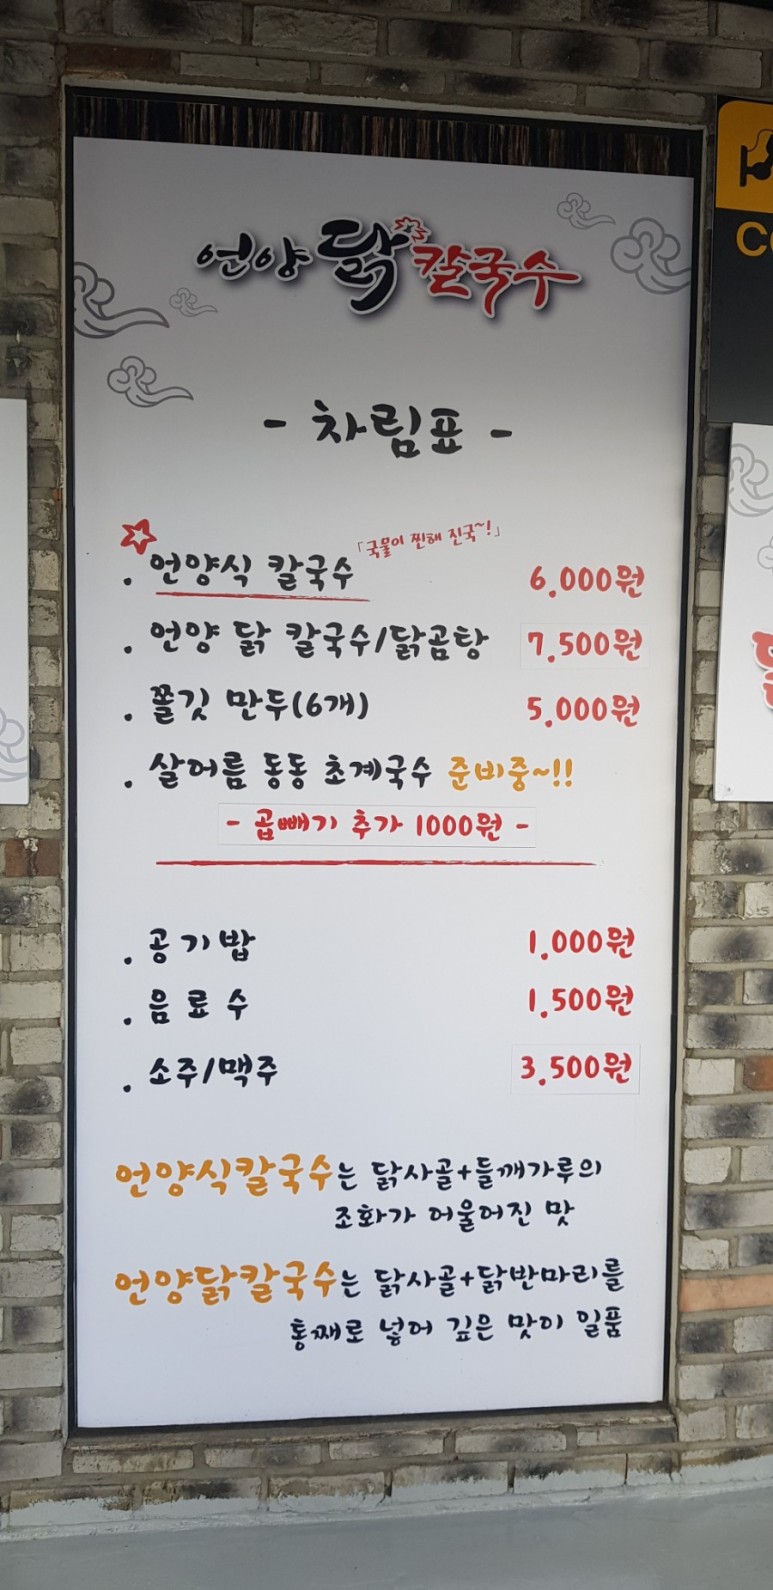 언양 닭칼국수
- 차림표 -
「국물이 찐해 진국~!」
. 언양식 칼국수 6.000원
. 언양 닭 칼국수/닭곰탕 7.500원
. 쫄깃 만두(6개) 5.000원
. 살어름 동동 초계국수 준비중~!!
- 곱빼기 추가 1000원 -
. 공기밥 1.000원
. 음료수 1.500원
. 소주/맥주 3.500원
언양식칼국수는 닭사골+들깨가루의
조화가 어울어진 맛
언양닭칼국수는 닭사골+닭반마리를
통째로 넣어 깊은 맛이 일품